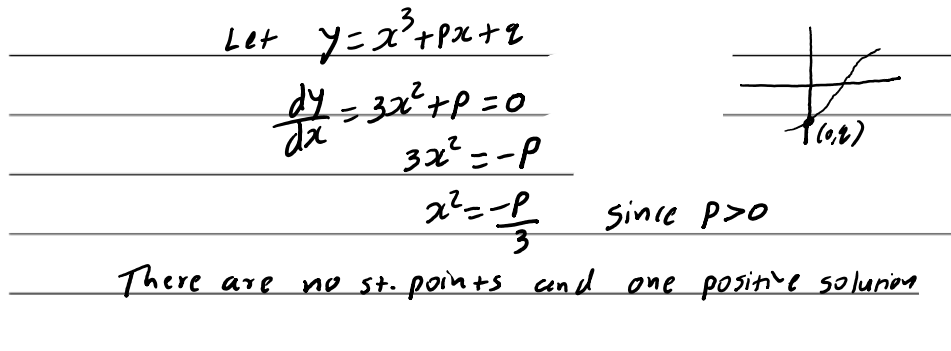 Let y = x³ + px + q
dy/dx = 3x² + p = 0
3x² = -p
x² = -p/3 since p>0
(0,q)
There are no st. points and one positive solution